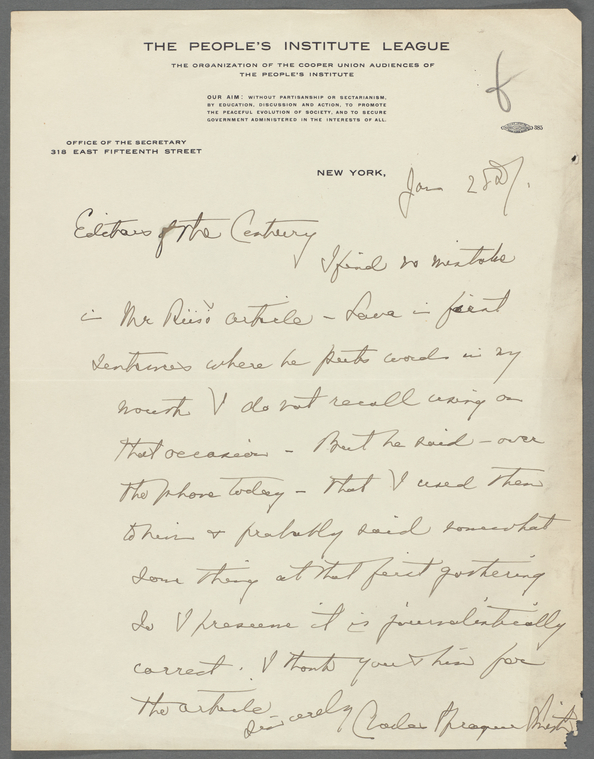 THE PEOPLE'S INSTITUTE LEAGUE
THE ORGANIZATION OF THE COOPER UNION AUDIENCES OF
THE PEOPLE'S INSTITUTE
OUR AIM: WITHOUT PARTISANSHIP OR SECTARIANISM,
BY EDUCATION, DISCUSSION AND ACTION, TO PROMOTE
THE PEACEFUL EVOLUTION OF SOCIETY, AND TO SECURE
GOVERNMENT ADMINISTERED IN THE INTERESTS OF ALL.
385
OFFICE OF THE SECRETARY
318 EAST FIFTEENTH STREET
NEW YORK, Jan
Editors of the Century
I find no mistake
in Mr Riis's article - Save in first
sentences where he puts words in my
mouth I do not recall using on
that occasion - But he said - over
the phone today - that I used them
to him & probably said somewhat
same thing at that first gathering
So I presume it is journalistically
correct. I thank you & him for
the article
Sincerely Charles Sprague Smith